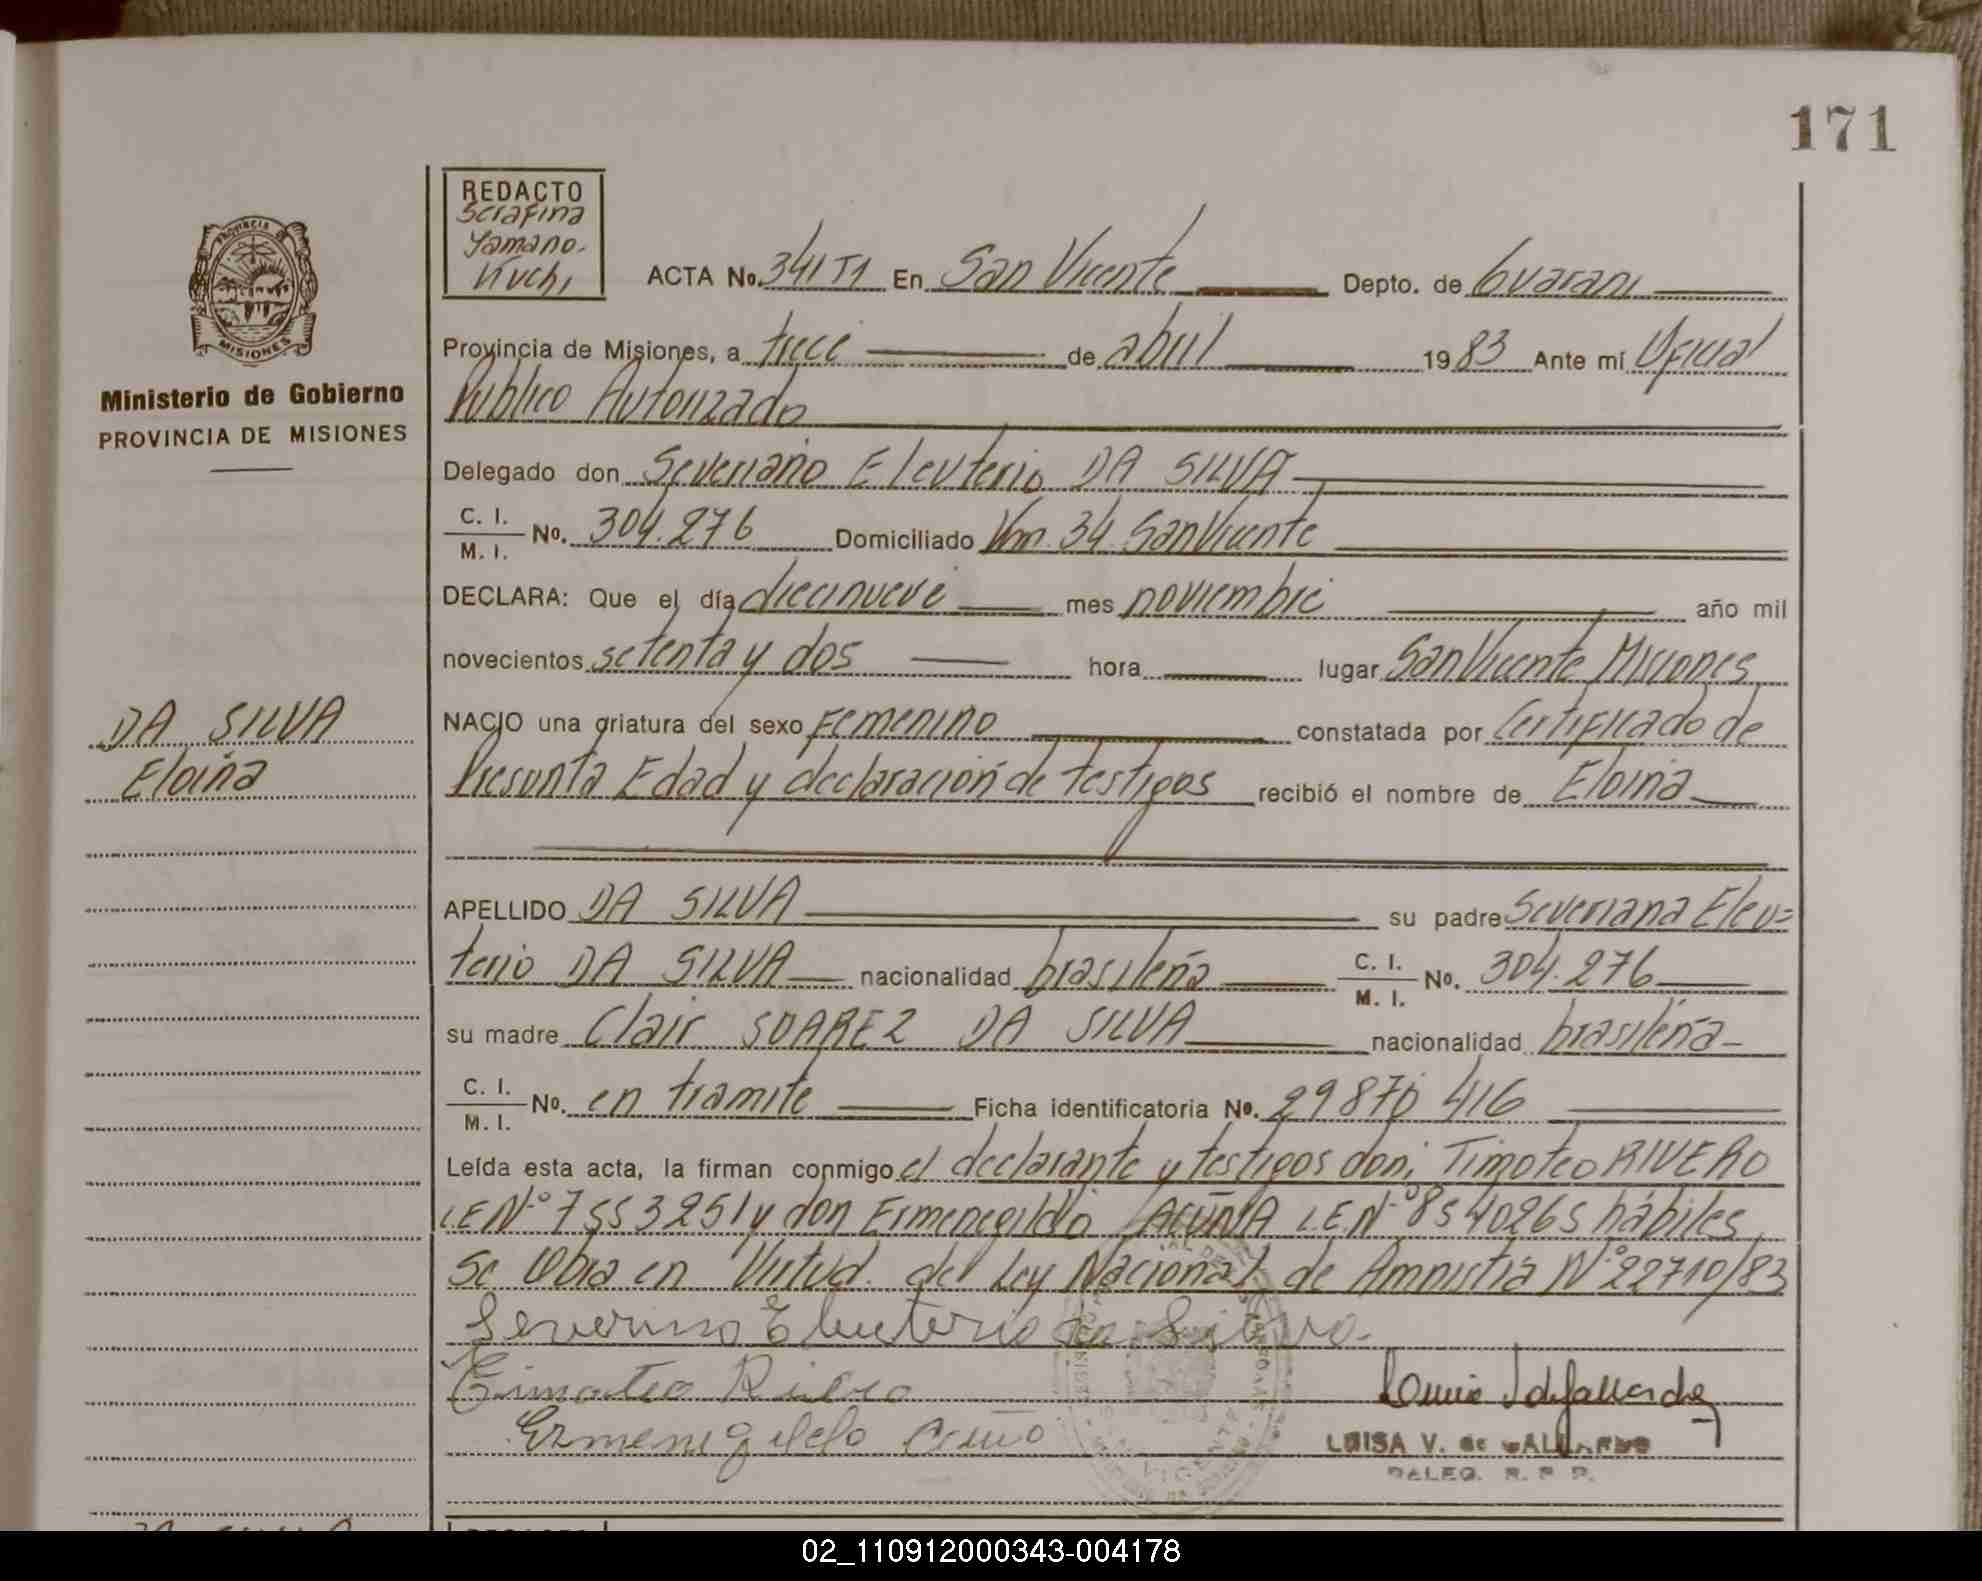 171
REDACTO
Serafina
Yamano.
Kuchi
PROVINCIA DE
MISIONES
Ministerio de Gobierno
PROVINCIA DE MISIONES
ACTA No. 341 T1 En San Vicente Depto. de Guarani
Provincia de Misiones, a trece de abril 1983 Ante mí Oficial
Publico Autorizado
Delegado don Severiano Eleuterio DA SILVA
C. I.
M. I. No. 304.276 Domiciliado Km. 34 San Vicente
DECLARA: Que el día diecinueve mes noviembre año mil
novecientos setenta y dos hora lugar San Vicente Misiones
NACIO una criatura del sexo Femenino constatada por Certificado de
Presunta Edad y declaración de testigos recibió el nombre de Eloina
DA SILVA
Eloina
APELLIDO DA SILVA su padre Severiana Eleu=
terio DA SILVA nacionalidad brasileña C. I.
M. I. No. 304.276
su madre Clair SOAREZ DA SILVA nacionalidad brasileña
C. I.
M. I. No. en tramite Ficha identificatoria No. 29870416
Leída esta acta, la firman conmigo el declarante y testigos don; Timoteo RIVERO
L.E.Nº 7553251 y don Ermenegildo ACUÑA L.E.Nº 8540265 hábiles
se Obra en Virtud. del Ley Nacional de Amnistia Nº 22710/83
Severino Eleuterio da Silva.
Timoteo Rivero
Ermenegildo Acuño
LUISA V. de GALLARDO
DELEG. R. P. P.
DA SILVA
REDACTO
02_110912000343-004178